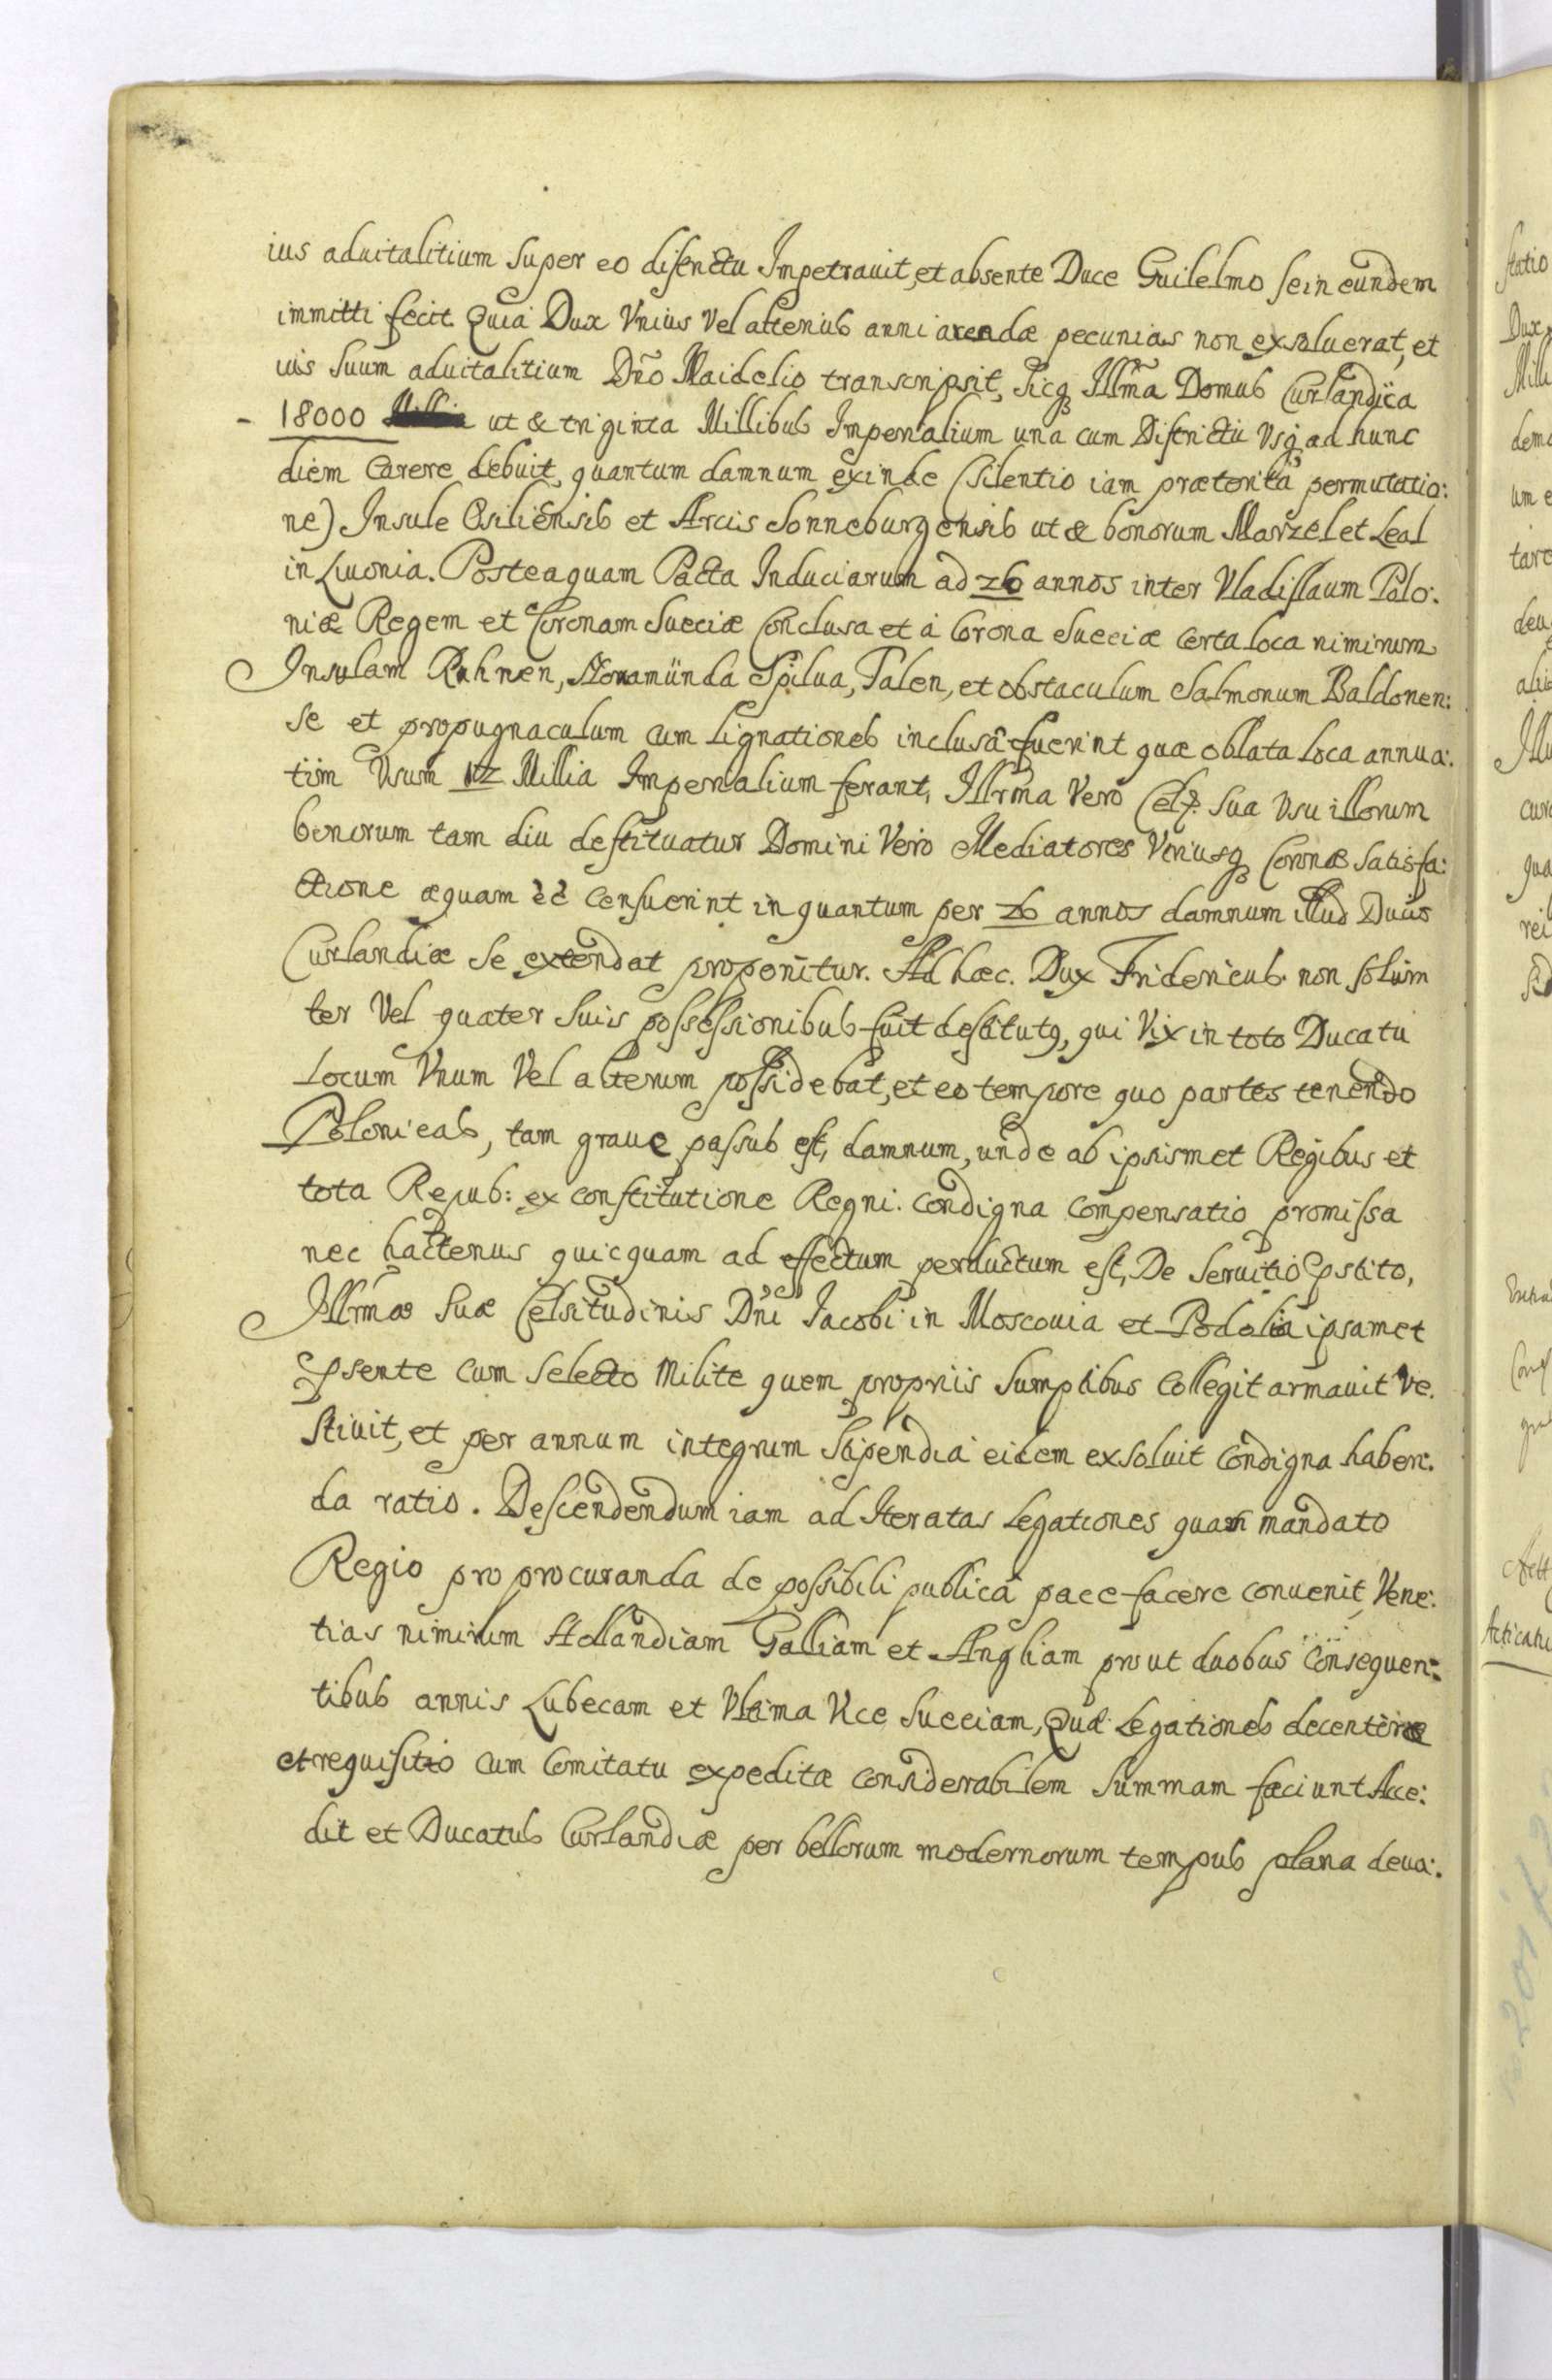 ius aduitalitium super eo districtu Impetrauit, et absente Duce Guilelmo se in eundem
immitti fecit Quia Dux Vnius vel alterius anni arendæ pecunias non exsoluerat, et
ius suum aduitalitium Dño Maidelio transcripsit, sicq Illma Domus Curlandica
- 18000 ut & triginta Millibus Imperialium una cum Districtu Vsq ad hunc
diem Carere debuit, quantum damnum exinde (silentio iam præterita permutatio:
ne) Insule Osiliensis et Arcis Sonneburgensis ut & bonorum Marzel et Leal
in Liuonia. Posteaquam Pacta Induciarum ad 26 annos inter Vladislaum Polo:
niæ Regem et Coronam Sueciæ Conclusa et à Corona Sueciæ certa loca nimirum
Insulam Ruhnen, Spilua, Palen, et obstaculum Salmonum Baldonen:
se et propugnaculum cum lignationes inclusa fuerint quæ oblata loca annua:
tim Vsum 12 Millia Imperialium ferant, Illrma Vero Cels. sua Vsu illorum
bonorum tam diu destituatur Domini Vero Mediatores Vtriusq Coronæ satisfa:
ctione æquam censuerint in quantum per 26 annos damnum illud Ducis
Curlandiæ se extendat proponitur. Ad hæc. Dux Fridericus non solùm
ter vel quater suis possessionibus fuit destitutq, qui Vix in toto Ducatu
Locum Vnum Vel alterum possidebat, et eo tempore quo partes tenendo
Polonicas, tam graue passus est, damnum, unde ab ipsismet Regibus et
tota Repub: ex constitutione Regni. condigna compensatio promissa
nec hactenus quicquam ad effectum perductum est, De Seruitio pstito,
Illrmæ suæ Celsitudinis Dñi Jacobi in Moscouia et Podolia ipsamet
psente cum selecto Milite quem propriis sumptibus collegit armauit ve.
stiuit, et per annum integrum stipendia eidem exsoluit condigna haben:
da ratio. Descendendum iam ad Iteratas Legationes quas mandato
Regio pro procuranda de possibili publicâ pace facere conuenit, Vene:
tias nimirum Hollandiam Galliam et Angliam prout duobus consequen:
tibus annis Lubecam et Vltima Vice Sueciam, Quæ Legationes decenter
et requisito cum Comitatu expeditæ considerabilem summam faciunt Acce:
dit et Ducatus Curlandiæ per bellorum modernorum tempus plana deua: